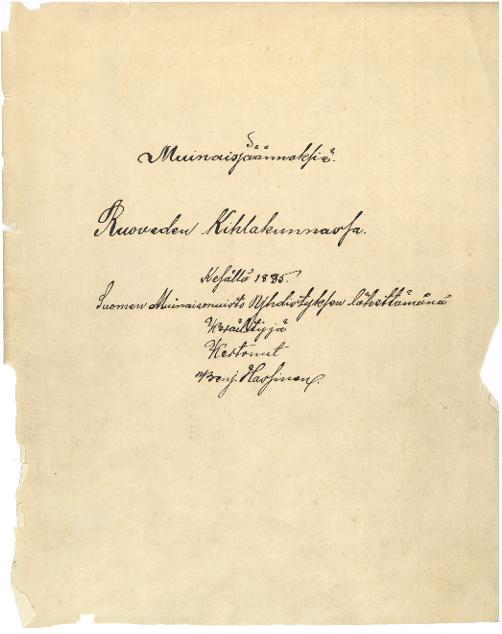 Muinaisjäännöksiä.
Ruoveden Kihlakunnassa.
Kesällä 1885.
Suomen Muinaismuisto Yhdistyksen lähettämänä
Keräilijä
Kertonut
Benj. Hassinen.